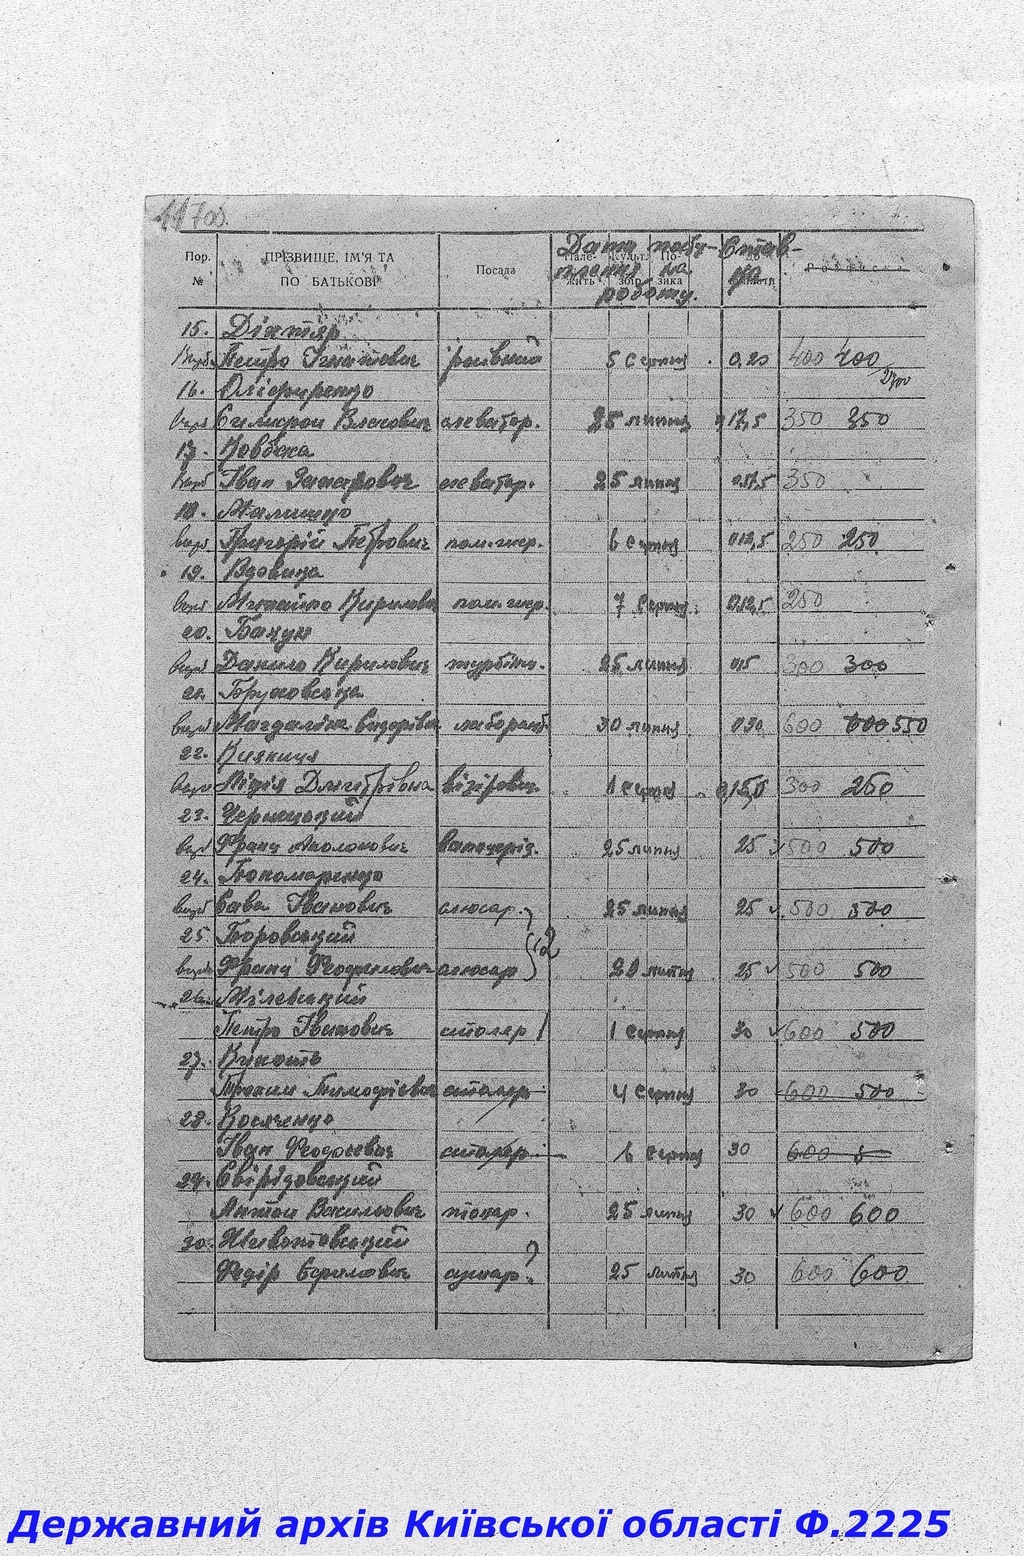 11700.
Пор. № ПРІЗВИЩЕ, ІМ'Я ТА ПО БАТЬКОВІ Посада Дата посту-плення на роботу. Став-ка
15. Дігтяр
Петро Ігнатович 5 серпня 0,20 400 400
2700
16. Олісиренко
Власович елеватор. 25 липня 0,17,5 350 350
17. Ковбаса
Іван Захарович елеватор. 25 липня 0,17,5 350
18. Малишко
Григорій Петрович 6 серпня 0,12,5 250 250
19. Вдовиця
Михайло Кирилович 7 серпня 0,12,5 250
20. Бакун
Данило Кирилович турбіни. 25 липня 0,15 300 300
21.
Магдаліна лаборант 30 липня 0,30 600 550
22. Кияниця
Лідія Дмитрівна візіров. 1 серпня 0,15,0 300 250
23. Черницький
Франц Аполонович 25 липня 25 500 500
24. Пономаренко
Сава Іванович слюсар. 25 липня 25 500 500
25. Боровський
2
Франц слюсар 20 липня 25 500 500
26. Мілевський
Петро Іванович столяр 1 серпня 30 600 500
27. Кукоть
Трохим Тимофієвич столяр 4 серпня 30 600 500
28. Косяченко
Іван Федосієвич столяр 6 серпня 30 600 5
29. Свірідовський
Антон Васильович токар. 25 липня 30 600 600
30. Животовський
?
Федір Єфимович 25 липня 30 600 600
Державний архів Київської області Ф.2225